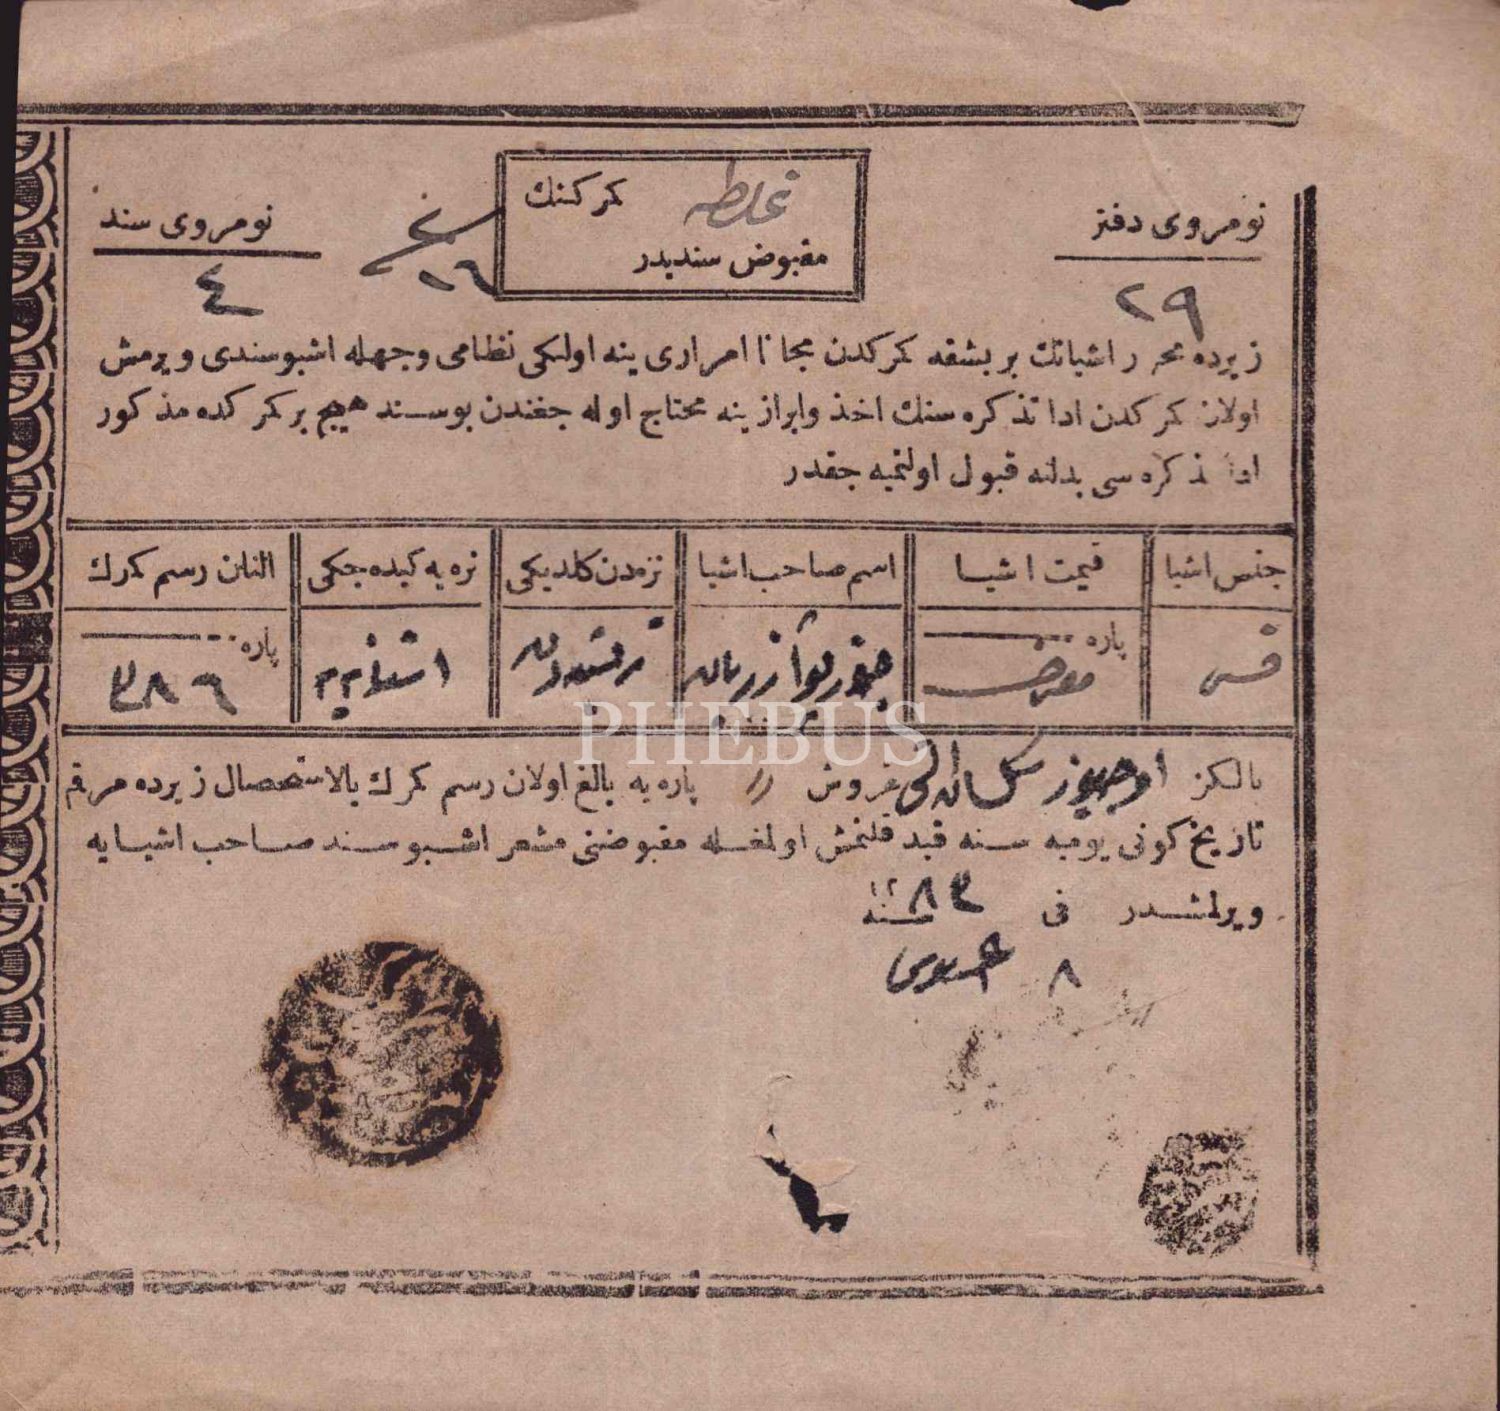 نومروی دفتر
٢٩
غلطه كمركنك
مقبوض سنديدر
١٦
نومروی سند
٤
زيرده محرر اشيانك بربشقه كمركدن مجانا امراری ينه اولكی نظامی وجهله اشبوسندی ويرمش
اولان كمركدن ادا تذكره سنك اخذ وابرازينه محتاج اوله جغندن بوسند هيچ بر كمركده مذكور
ادا تذكره سی بدلنه قبول اولنميه جقدر
جنس اشيا
قيمت اشيا
اسم صاحب اشيا
نره دن كلديكی
نره يه كيده جكی
النان رسم كمرك
فس
پاره
پاره
٣٨٦
PHEBUS
يالكز اوچيوز سكسان التی غروش پاره يه بالغ اولان رسم كمرك بالاستحصال زيرده مرقم
تاريخ كونی يوميه سنه قيد قلنمش اولمغله مقبوضنی مشعر اشبو سند صاحب اشيايه
ويرلمشدر فی سنه ١٢٨٣
٨ اغستوس